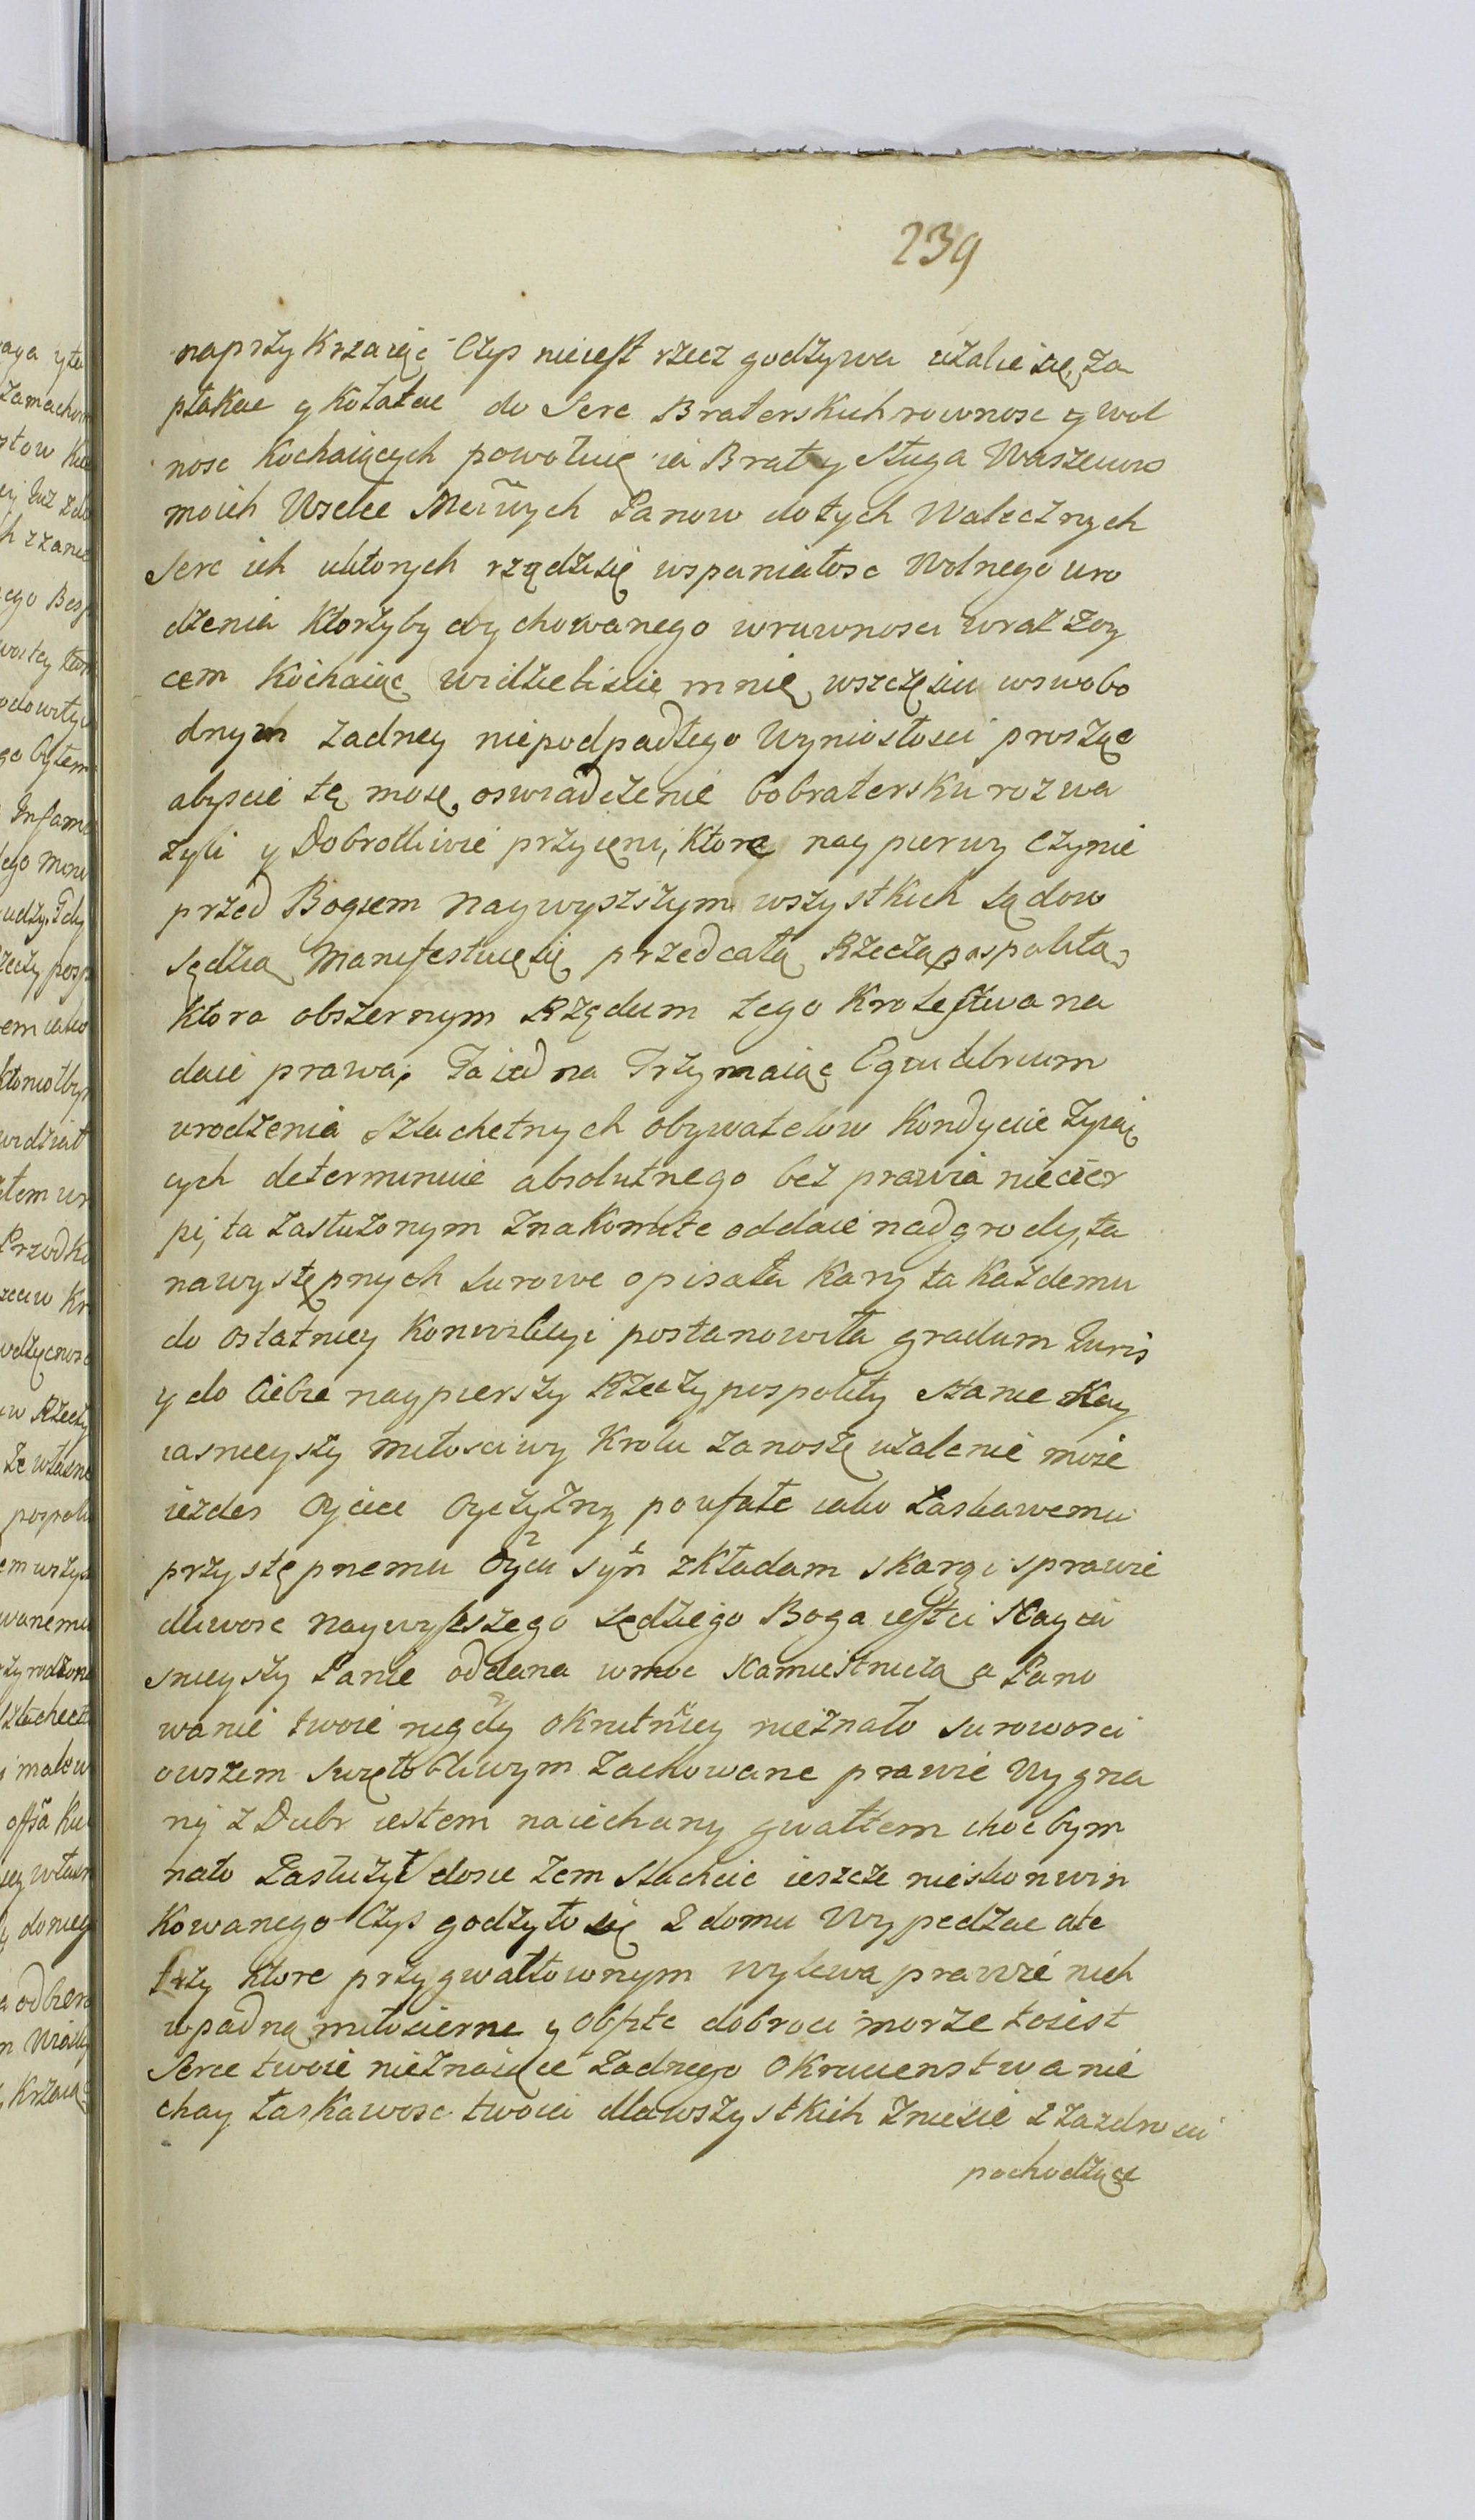 239
naprzykrzaiąc Czys nieiest rzecz godzywa użalic się, za
płakac y Kołatac do Serc Braterskich rownosc y wol
nosc Kochaiących powołuię ia Brat y sługa Waszmw
moich Wselce Mciwych Panow dotych Walecznych
Serc ich uktorych rządzisię wspaniałosc Wolnego uro
dzenia Ktorzyby wychowanego wruwnosci wraz zoy
cem Kochaiąc widzieliscie mnie, wszczęsiu wswobo
dnym zadney niepodpadłego Wyniosłosci prosząc
abyscie tę moię, oswiadczenie bobratersku rozwa
zyli y Dobrotliwie przyieni, Ktorą naypierwy czynie
przed Bogiem naywyszszym wszystkich sądow
sędzią Manifestuięsię przedcałą Rzecząpospolitą
Ktora obszernym Rządum tego Krolestwa na
daie prawa, Ta iedna Trzymaiąc Equilibrium
urodzenia Szlachetnych obywatelow Kondycie zyią
cych determinuie absolutnego bez prawia niecier
pi, ta zasłużonym znakomite oddaie nadgrody, ta
nawystępnych surowe opisała Kary ta Każdemu
do ostatniey Konwikcyi postanowiła gradum Iuris
y do Ciebie naypierszy Rzeczypospolity Stanie Nay
iasnieyszy miłosciwy Krolu zanoszę użalenie moie
iezdes Oyciec Oyczyzny poufałe iako Łaskawemu
przystępnemu Oycu syn zkładam skargi sprawie
dliwosc naywyszszego sędziego Boga iestci Nayia
snieyszy Panie oddana wmoc Namiestnicza a Pano
wanie twoie nigdy okrutniey nieznało surowosci
owszem swiętobliwym zachowane prawie Wygna
ny z Dubr iestem naiechany gwałtem chocbym
nato Zasłuzył dosic zem szlachcic ieszcze nieskonwin
Kowanego Czys godzyłosię z domu Wypedzac ale
łzy ktore przygwałtownym wylewa prawie niech
wpadną miłosierne y obfite dobroci morze toiest
Serce twoie nieznaiące Zadnego okrucienstwa nie
chay łaskawosc twoia dlawszystkich zniesie z zazdrosci
pochodzące